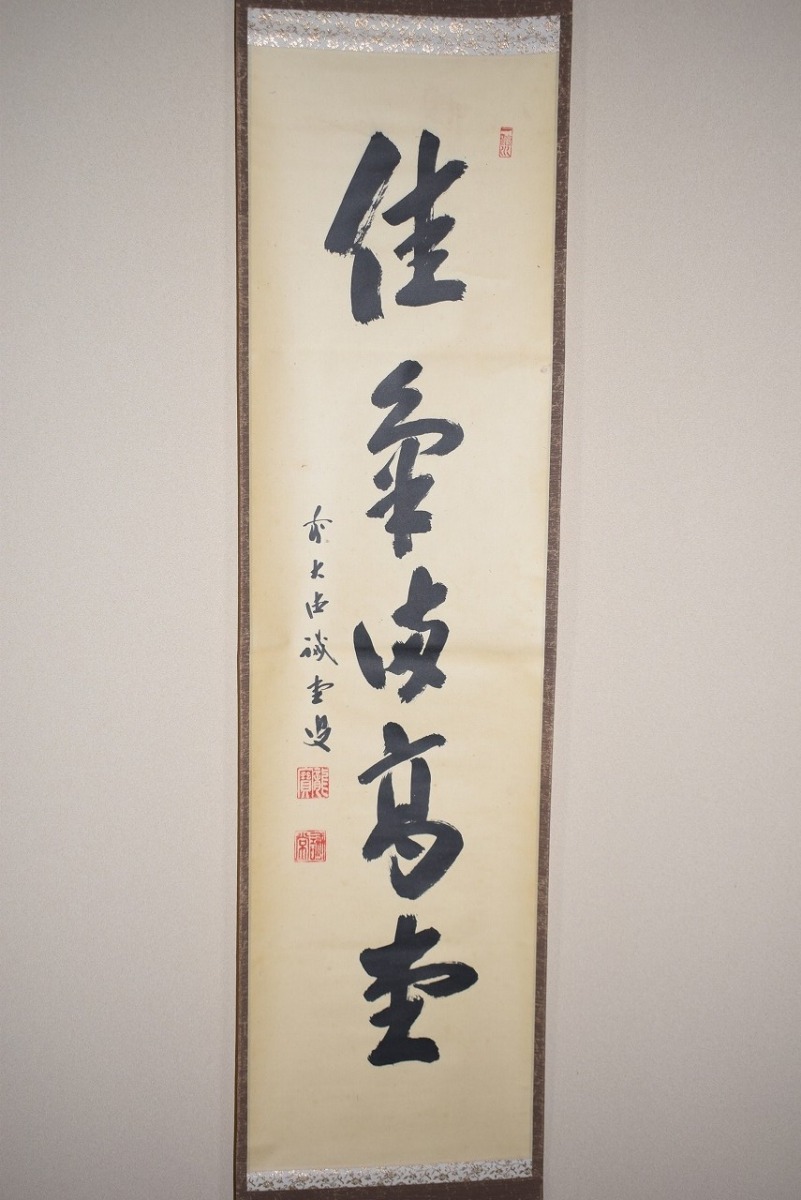 佳氣満高堂
前大徳誡堂叟